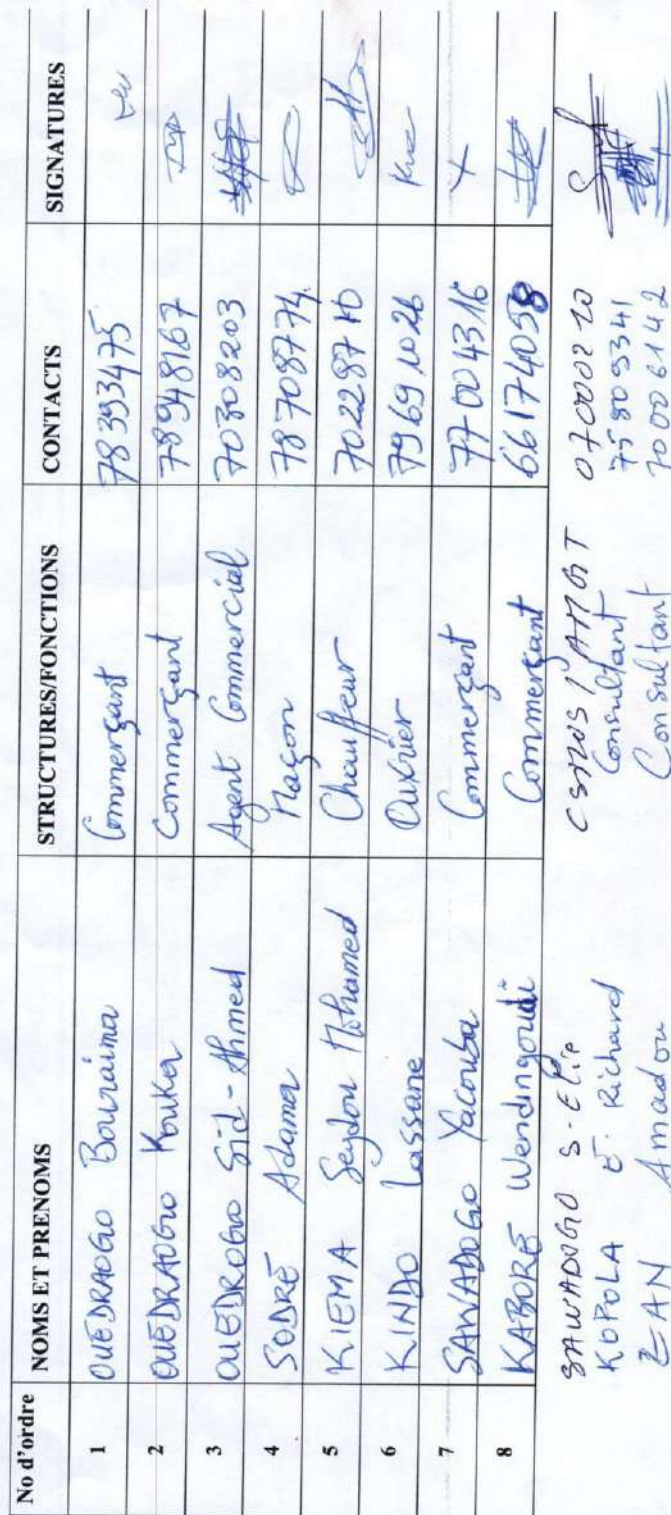 No d'ordre NOMS ET PRENOMS STRUCTURES/FONCTIONS CONTACTS SIGNATURES
1 OUEDRAOGO Bouraima Commerçant 78393475
2 OUEDRAOGO Kouka Commerçant 78948167
3 OUEDRAOGO Sid-Ahmed Agent Commercial 70308203
4 SODRÉ Adama Maçon 78708774
5 KIEMA Seydou Mohamed Chauffeur 70228710
6 KINDO Lassane Ouvrier 79691026
7 SAWADOGO Yacouba Commerçant 77004316
8 KABORÉ Wendingoudi Commerçant 66174058
SAWADOGO S-Elie 07000210
KOPOLA E. Richard Consultant 75809341
ZAN Amadou Consultant 70006142